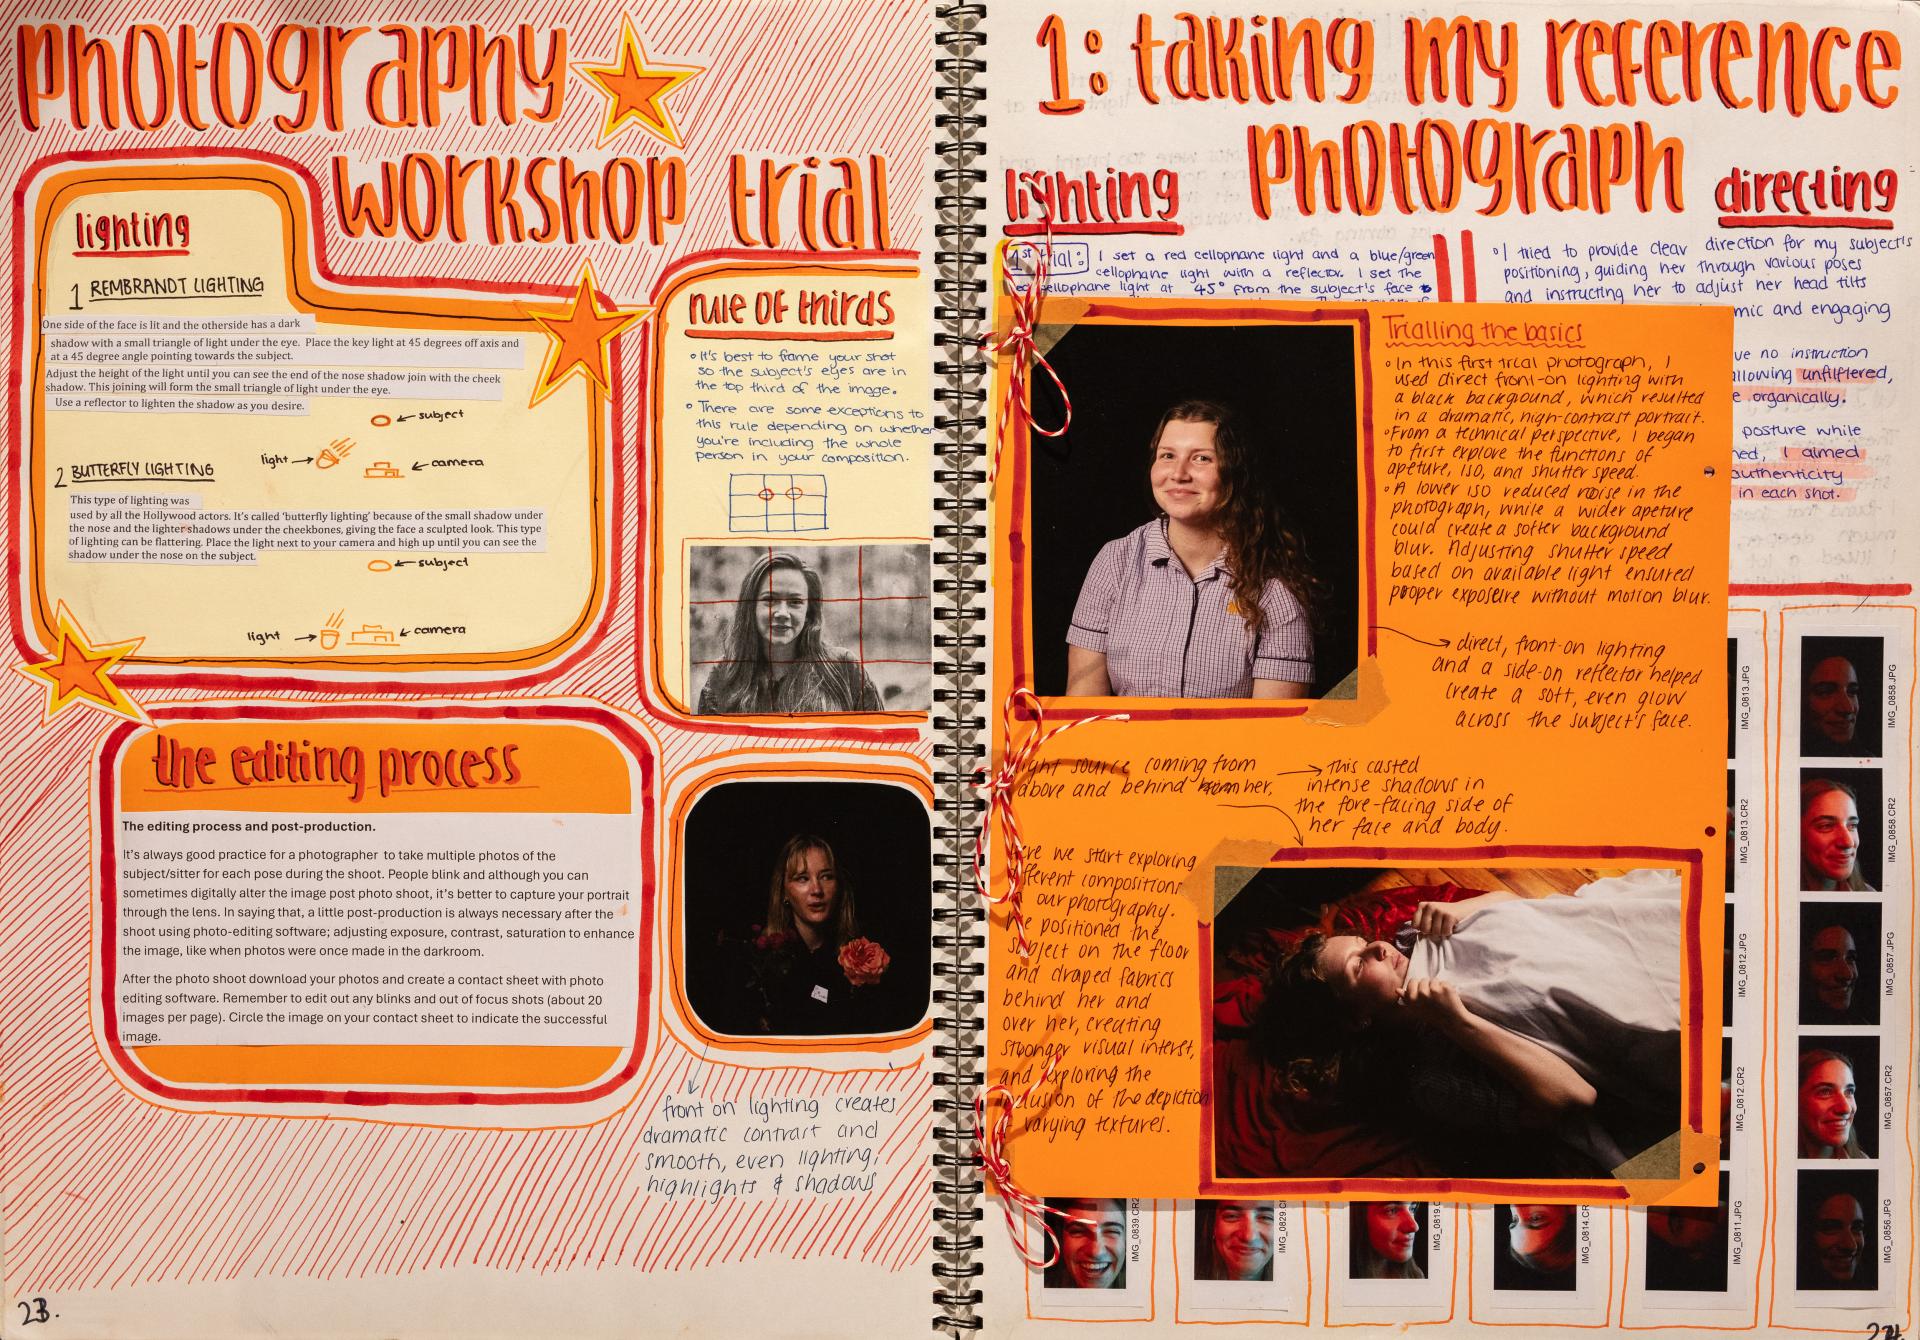 photography
workshop trial
lighting
1 REMBRANDT LIGHTING
One side of the face is lit and the otherside has a dark
shadow with a small triangle of light under the eye. Place the key light at 45 degrees off axis and
at a 45 degree angle pointing towards the subject.
Adjust the height of the light until you can see the end of the nose shadow join with the cheek
shadow. This joining will form the small triangle of light under the eye.
Use a reflector to lighten the shadow as you desire.
subject
light
camera
2 BUTTERFLY LIGHTING
This type of lighting was
used by all the Hollywood actors. It's called 'butterfly lighting' because of the small shadow under
the nose and the lighter shadows under the cheekbones, giving the face a sculpted look. This type
of lighting can be flattering. Place the light next to your camera and high up until you can see the
shadow under the nose on the subject.
subject
light
camera
rule of thirds
• It's best to frame your shot
so the subject's eyes are in
the top third of the image.
• There are some exceptions to
this rule depending on whether
you're including the whole
person in your composition.
the editing process
The editing process and post-production.
It's always good practice for a photographer to take multiple photos of the
subject/sitter for each pose during the shoot. People blink and although you can
sometimes digitally alter the image post photo shoot, it's better to capture your portrait
through the lens. In saying that, a little post-production is always necessary after the
shoot using photo-editing software; adjusting exposure, contrast, saturation to enhance
the image, like when photos were once made in the darkroom.
After the photo shoot download your photos and create a contact sheet with photo
editing software. Remember to edit out any blinks and out of focus shots (about 20
images per page). Circle the image on your contact sheet to indicate the successful
image.
front on lighting creates
dramatic contrast and
smooth, even lighting,
highlights & shadows
23.
1: taking my reference
photograph
lighting
1st trial: I set a red cellophane light and a blue/green
cellophane light with a reflector. I set the
cellophane light at 45° from the subject's face
directing
• I tried to provide clear direction for my subject's
positioning, guiding her through various poses
and instructing her to adjust her head tilts
and engaging
no instruction
allowing unfilfered,
organically.
posture while
I aimed
authenticity
in each shot.
Trialling the basics
• In this first trial photograph, I
used direct front-on lighting with
a black background, which resulted
in a dramatic, high-contrast portrait.
• From a technical perspective, I began
to first explore the functions of
apeture, ISO, and shutter speed.
• A lower ISO reduced noise in the
photograph, while a wider apeture
could create a softer background
blur. Adjusting shutter speed
based on available light ensured
proper exposure without motion blur.
direct, front-on lighting
and a side-on reflector helped
create a soft, even glow
across the subject's face.
light source coming from
above and behind her,
this casted
intense shadows in
the fore-facing side of
her face and body.
we start exploring
compositions
our photography.
we positioned the
subject on the floor
and draped fabrics
behind her and
over her, creating
stronger visual interst,
and exploring the
inclusion of the depiction
varying textures.
IMG_0813.JPG
IMG_0813.CR2
IMG_0812.JPG
IMG_0812.CR2
IMG_0811.JPG
IMG_0858.JPG
IMG_0858.CR2
IMG_0857.JPG
IMG_0857.CR2
IMG_0856.JPG
IMG_0839.CR2
IMG_0829.CR2
IMG_0819.
IMG_0814.CR